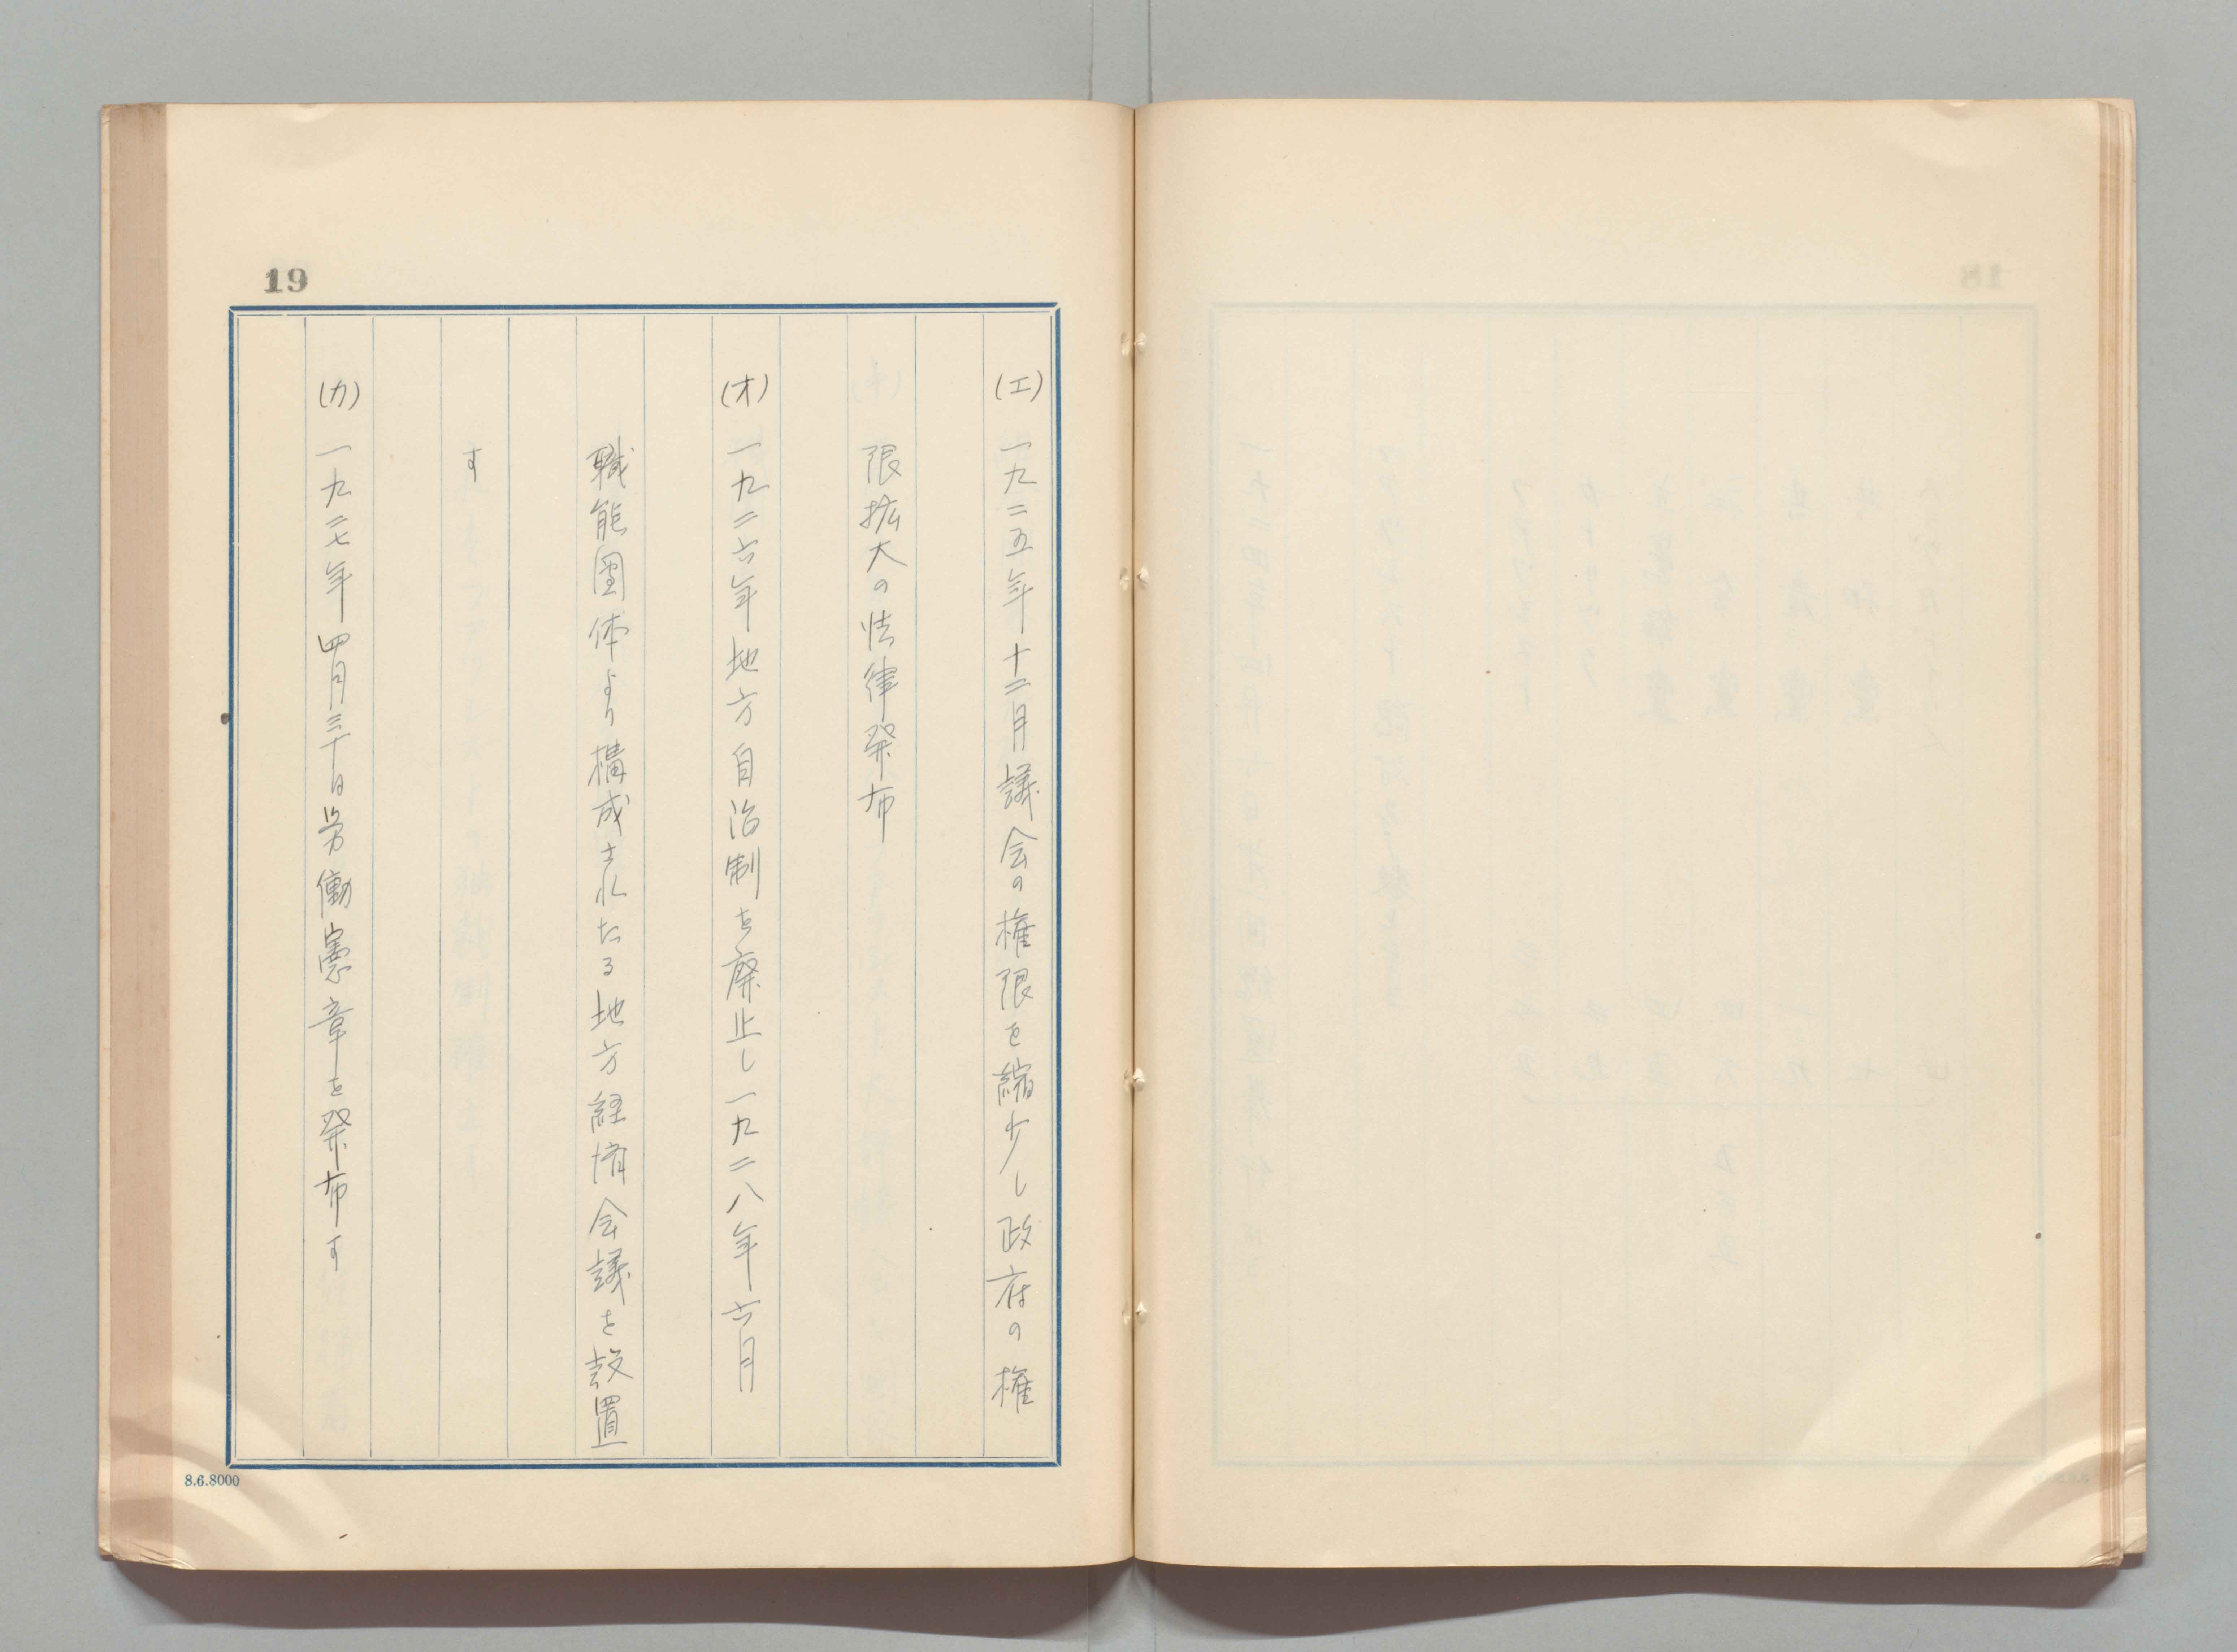 19
(エ) 一九二五年十二月議会の権限を縮少し政府の権
限拡大の法律発布
(オ) 一九二六年地方自治制を廃止し一九二八年六月
職能團体より構成されたる地方経済会議を設置
す
(カ) 一九二七年四月三十日労働憲章を発布す
8.6.8000